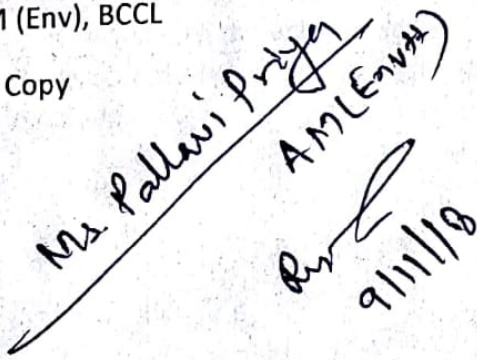 (Env), BCCL
Copy
Ms. Pallavi Priya
AM(Envtt)
9/11/18